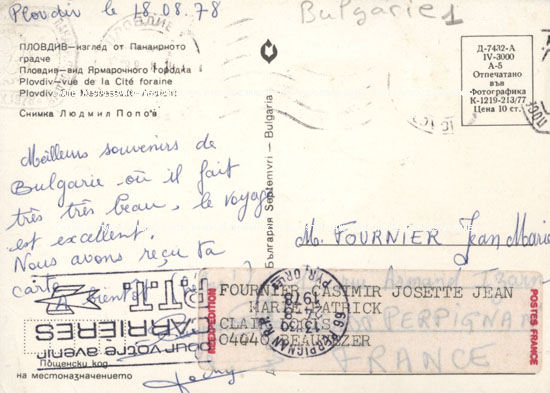 Plovdiv le 18.08.78
Bulgarie 1
ПЛОВДИВ—изглед от Панаирното
градче
Пловдив—вид Ярмарочного городка
Plovdiv—vue de la Cité foraine
Plovdiv
Снимка Людмил Попов
Д-7432-А
IV-3000
А-5
Отпечатано
във
Фотографика
К-1219-213/77
Цена 10 ст.
Meilleurs souvenirs de
Bulgarie où il fait
très très beau, le voyage
est excellent.
Nous avons reçu ta
carte.
A bientôt
България Septemvri—Bulgaria
M. FOURNIER Jean Marie
Armand
PERPIGNAN
FRANCE
FOURNIER CASIMIR JOSETTE JEAN
MARIE PATRICK
CLAI
04440 BEAU ZER
REEXPEDITION
POSTES FRANCE
66 PERPIGNAN R.P.
PYR. ORLES
13H30
1978
P.T.T.
CARRIÈRES
pour votre avenir
Пощенски код
на местоназначението